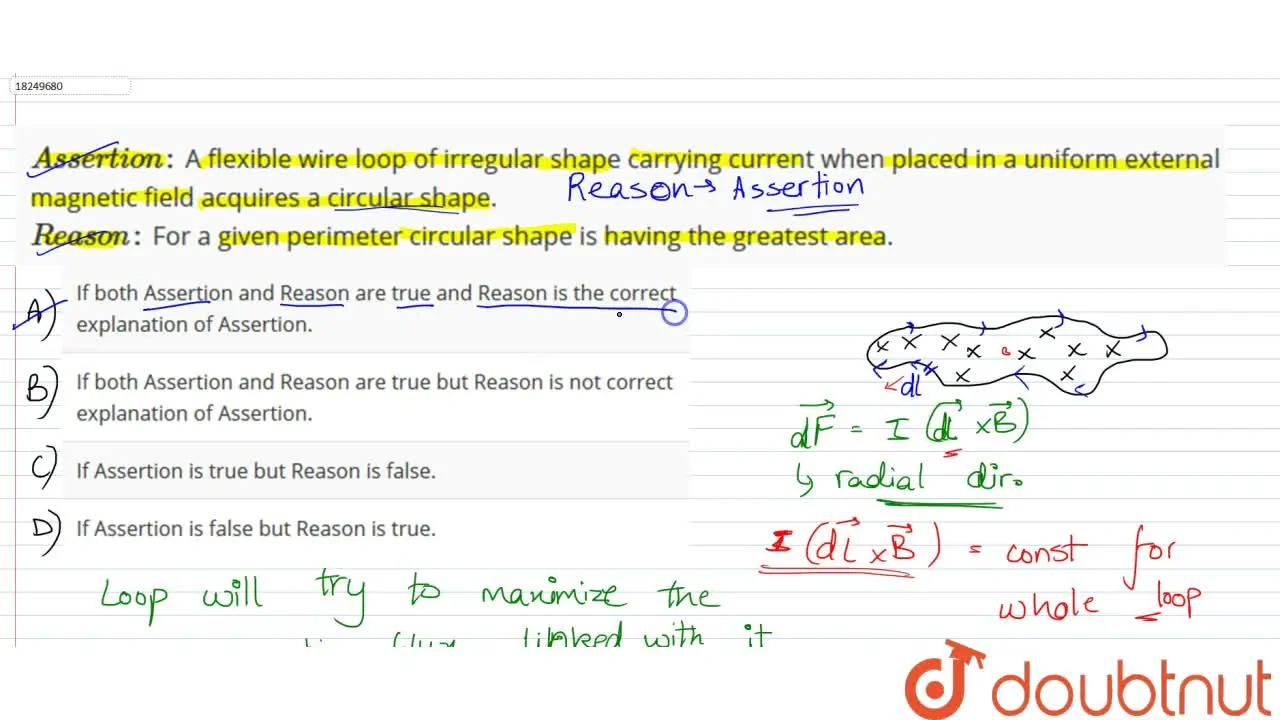 18249680
Assertion: A flexible wire loop of irregular shape carrying current when placed in a uniform external
magnetic field acquires a circular shape.
Reason → Assertion
Reason: For a given perimeter circular shape is having the greatest area.
A) If both Assertion and Reason are true and Reason is the correct
explanation of Assertion.
B) If both Assertion and Reason are true but Reason is not correct
explanation of Assertion.
C) If Assertion is true but Reason is false.
D) If Assertion is false but Reason is true.
x x x x x x x x x x x
B
dl
dF = I (dl × B)
↳ radial dir.
I (dl × B) = const for
whole loop
Loop will try to maximize the
linked with it
doubtnut